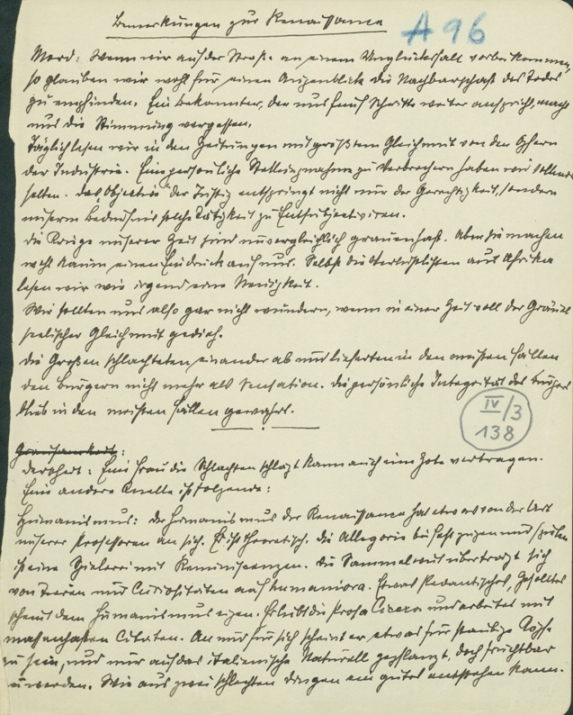 Bemerkungen zur Renaissance
A 96
Mord: Wenn wir auf der Straße an einem Unglücksfall vorbei kommen,
so glauben wir wohl für einen Augenblick die Nachbarschaft des Todes
zu empfinden. Ein Bekannter, der uns fünf Schritte weiter anspricht, macht
uns die Stimmung vergessen.
Täglich lesen wir in den Zeitungen mit größtem Gleichmut von den Opfern
der Industrie. Eine persönliche Stellungnahme zu Verbrechern haben wir
selten. Das Objektive der Justiz entspringt nicht nur der Gerechtigkeit, sondern
unserm Bedürfnis solche Tätigkeit zu
Die Kriege unserer Zeit sind unvergleichlich grauenhaft. Aber sie machen
wohl kaum einen Eindruck auf uns. Selbst die Verlustlisten aus Afrika
lesen wir wie irgend eine Neuigkeit.
Wir sollten uns also gar nicht wundern, wenn in einer Zeit voll der Gräuel
seelischer Gleichmut gedieh.
Die Großen schlachteten einander ab und lieferten in den meisten Fällen
den Bürgern nicht mehr als Sensation. Die persönliche Integrität des Bürgers
blieb in den meisten Fällen gewahrt.
IV/3
138
Grausamkeit:
Derbheit: Eine Frau die Schlachten schlägt kann auch eine Zote vertragen.
Eine andere Quelle ist folgende:
Humanismus: Der Humanismus der Renaissance hat etwas von der Art
unserer Professoren an sich. Er ist theoretisch. Die Allegorie bei Festzügen und Spielen
ist eine Spielerei mit Reminiszenzen. Die Sammelwut überträgt sich
von Tieren und Curiositäten auf humaniora. Etwas Pedantisches,
scheint dem Humanismus eigen. Er liebt die Prosa Ciceros und arbeitet mit
massenhaften Citaten. An und für sich scheint er etwas für staubige
zu sein, und nur auf das italienische Naturell gepflanzt, doch fruchtbar
zu werden. Wie aus zwei schlechten Dingen ein gutes entstehen kann.